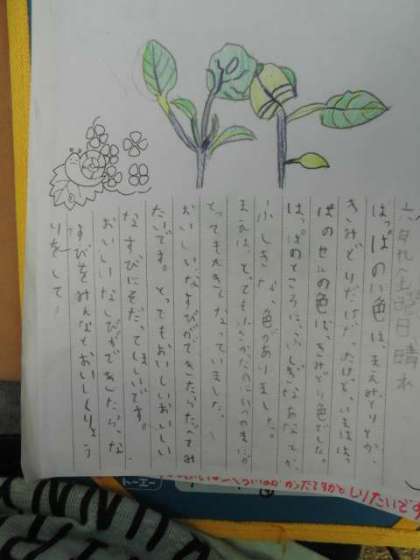 六月九日土曜日晴れ
はっぱのい色は、まえみどりとか、
きみどりだけだったけど、いまははっ
ぱのせんの色は、きみどり色でした。
はっぱのところに、ふしぎなあなとか、
ふしぎな、色がありました。
まえは、とても小さかったのにいつのまにか
とっても大きくなっていました。
おいしいなすびができたらたべてみ
たいです。とってもおいしいおいしい
なすびにそだってほしいです。
おいしいなすびができたら、な
すびをみんなとおいしくりょう
りをして